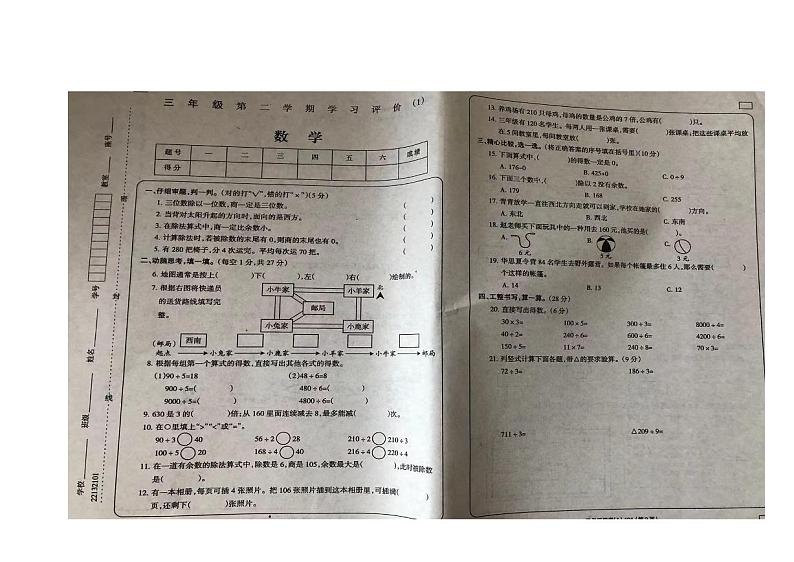 三年级第二学期学习评价(1)
数学
题号 一 二 三 四 五 六 成绩
得分
一、仔细审题,判一判。(对的打“√”,错的打“×”)(5分)
1. 三位数除以一位数,商一定是三位数。( )
2. 当背对太阳升起的方向时,面向的是西方。( )
3. 在除法算式中,商一定比余数小。( )
4. 计算除法时,若被除数的末尾有0,则商的末尾也有0。( )
5. 有280把椅子,分4次运完。平均每次运70把。( )
二、动脑思考,填一填。(每空1分,共27分)
6. 地图通常是按上( )下( ),左( )右( )绘制的。
7. 根据右图将快递员
的送货路线填写完
整。
小牛家 小羊家 北
邮局
小兔家 小鹿家
(邮局) 西南
起点 小兔家 小鹿家 小羊家 小牛家 邮局
8. 根据每组第一个算式的得数,直接写出其他各式的得数。
(1)90÷5=18 (2)48÷6=8
900÷5=( ) 480÷6=( )
9000÷5=( ) 4800÷6=( )
9. 630是3的( )倍;从160里面连续减去8,最多能减( )次。
10. 在○里填上“>”“<”或“=”。
90÷3○40 56÷2○28 210÷2○210÷3
100÷5○20 168÷4○40 216÷4○250÷5
11. 在一道有余数的除法算式中,除数是6,商是105,余数最大是( ),此时被除数
是( )。
12. 有一本相册,每页可插4张照片。把106张照片插到这本相册里,可插满( )
页,还剩下( )张照片。
学校
班级
姓名
学号
教室
座号
22132101
13. 养鸡场有210只母鸡,母鸡的数量是公鸡的7倍,公鸡有( )只。
14. 三年级有120名学生。每两人用一张课桌,需要( )张课桌;把这些课桌平均放
在5间教室里,每间教室放( )张。
三、精心比较,选一选。(将正确答案的序号填在括号里)(10分)
15. 下面算式中,( )的得数一定是0。
A. 176-0 B. 425+0 C. 0÷9
16. 下面三个数中,( )除以2没有余数。
A. 179 B. 168 C. 255
17. 青青放学一直往西北方向走就可以到家,学校在她家的( )方向。
A. 东北 B. 西北 C. 东南
18. 赵老师买下面玩具中的一种用去160元,他买的是( )。
A. 6元 B. 5元 C. 3元
19. 华思夏令营84名学生去野外露营。如果每个帐篷最多住6人,那么需要( )
个这样的帐篷。
A. 14 B. 13 C. 12
四、工整书写,算一算。(28分)
20. 直接写出得数。(6分)
30×3= 100×5= 300÷3= 8000÷4=
40÷2= 240÷6= 600÷2= 4400÷4=
150÷5= 11×7= 240÷8= 70×3=
21. 列竖式计算下面各题,带△的要求验算。(9分)
72÷3= 186÷3=
711÷3= △209÷9=